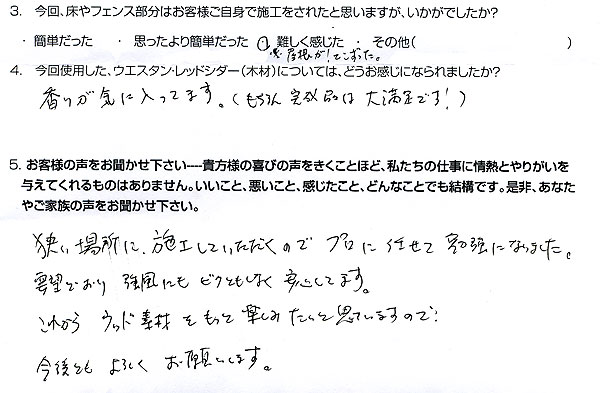 3. 今回、床やフェンス部分はお客様ご自身で施工をされたと思いますが、いかがでしたか?
・簡単だった ・ 思ったより簡単だった ・ 難しく感じた ・ その他( )
※屋根が!てこずった。
4. 今回使用した、ウエスタン・レッドシダー(木材)については、どうお感じになられましたか?
香りが気に入ってます。(もちろん完成品は大満足です!)
5. お客様の声をお聞かせ下さい----貴方様の喜びの声をきくことほど、私たちの仕事に情熱とやりがいを
与えてくれるものはありません。いいこと、悪いこと、感じたこと、どんなことでも結構です。是非、あなた
やご家族の声をお聞かせ下さい。
狭い場所に、施工していただくので プロに任せて 勉強になりました。
要望どおり 強風にも ビクともしなく 安心してます。
これから ウッド素材をもっと楽しみたいと思ていますので、
今後とも よろしく お願いします。